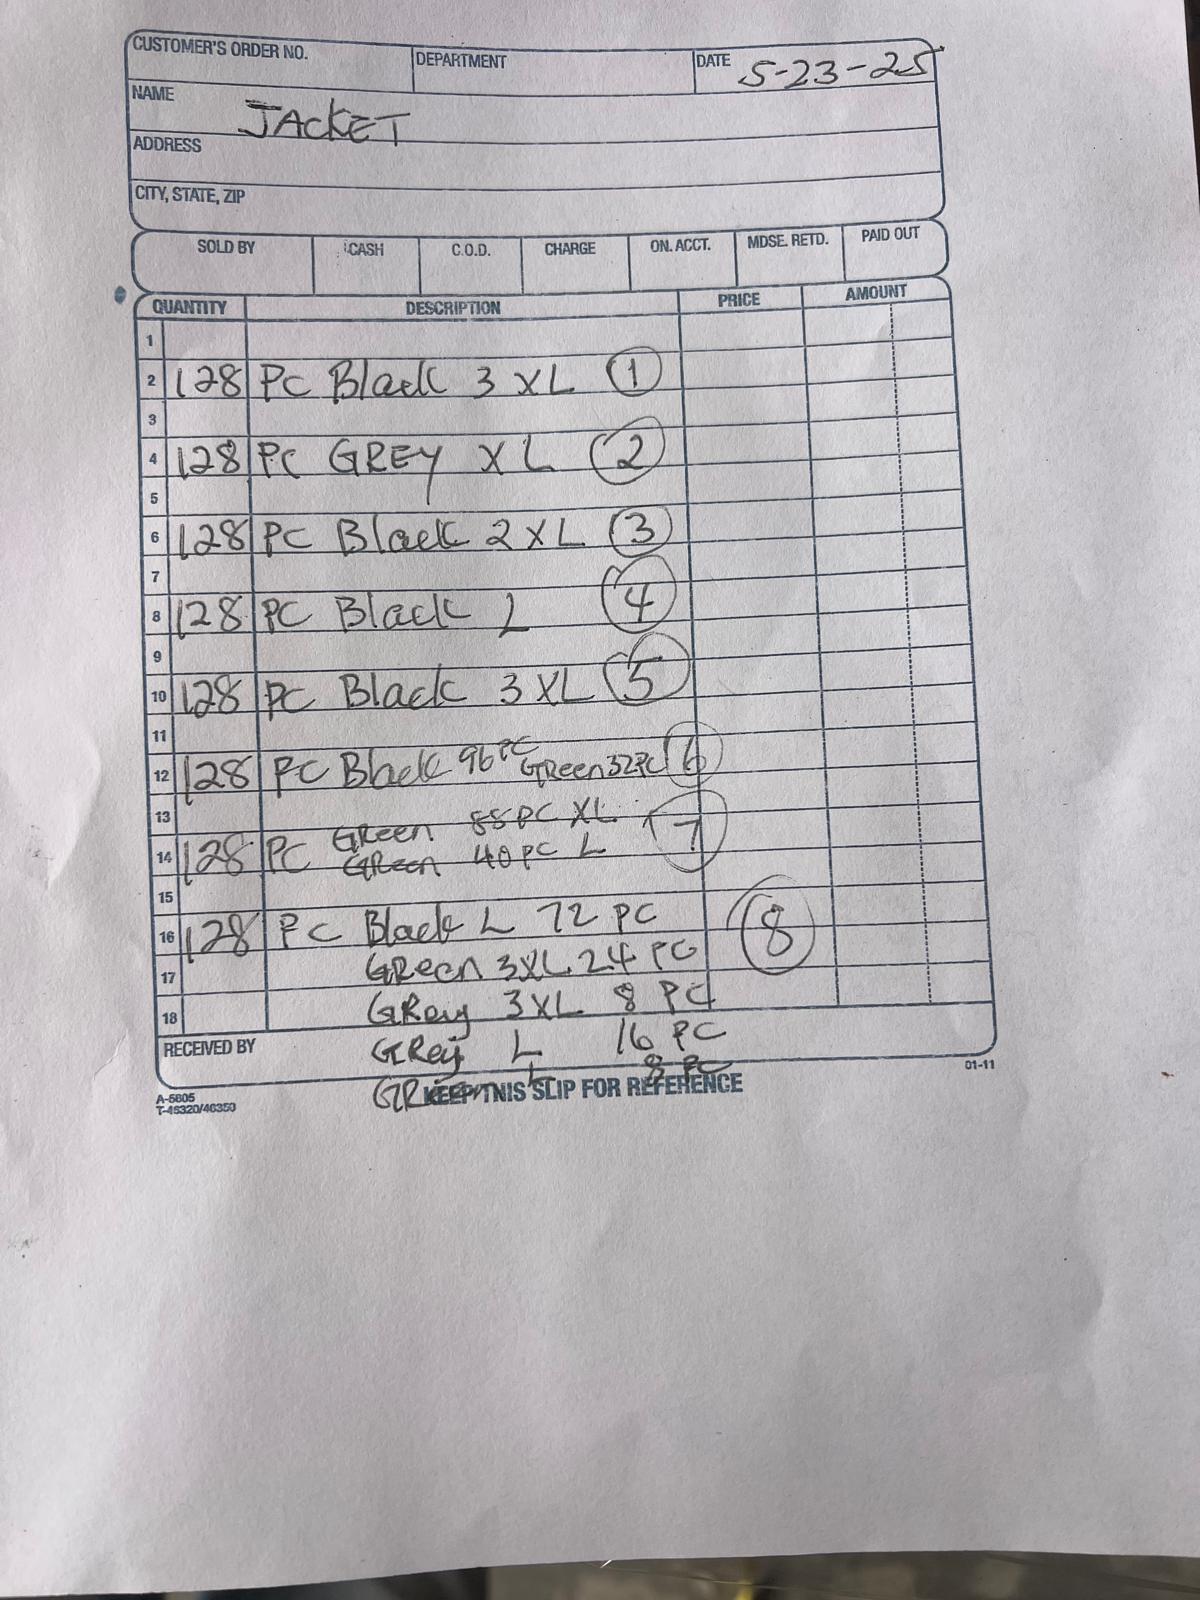 CUSTOMER'S ORDER NO. DEPARTMENT DATE 5-23-25
NAME JACKET
ADDRESS
CITY, STATE, ZIP
SOLD BY CASH C.O.D. CHARGE ON. ACCT. MDSE. RETD. PAID OUT
QUANTITY DESCRIPTION PRICE AMOUNT
1
2 128 PC Black 3 XL 1
3
4 128 PC GREY XL 2
5
6 128 PC Black 2 XL 3
7
8 128 PC Black L 4
9
10 128 PC Black 3 XL 5
11
12 128 PC Black 96 PC GReen 32 PC 6
13 GReen 88 PC XL
14 128 PC GReen 40 PC L 7
15
16 128 PC Black L 72 PC 8
17 GReen 3XL 24 PC
18 GRey 3XL 8 PC
RECEIVED BY GRey L 16 PC
L 8 PC
KEEP THIS SLIP FOR REFERENCE
01-11
A-5805
T-46320/46350